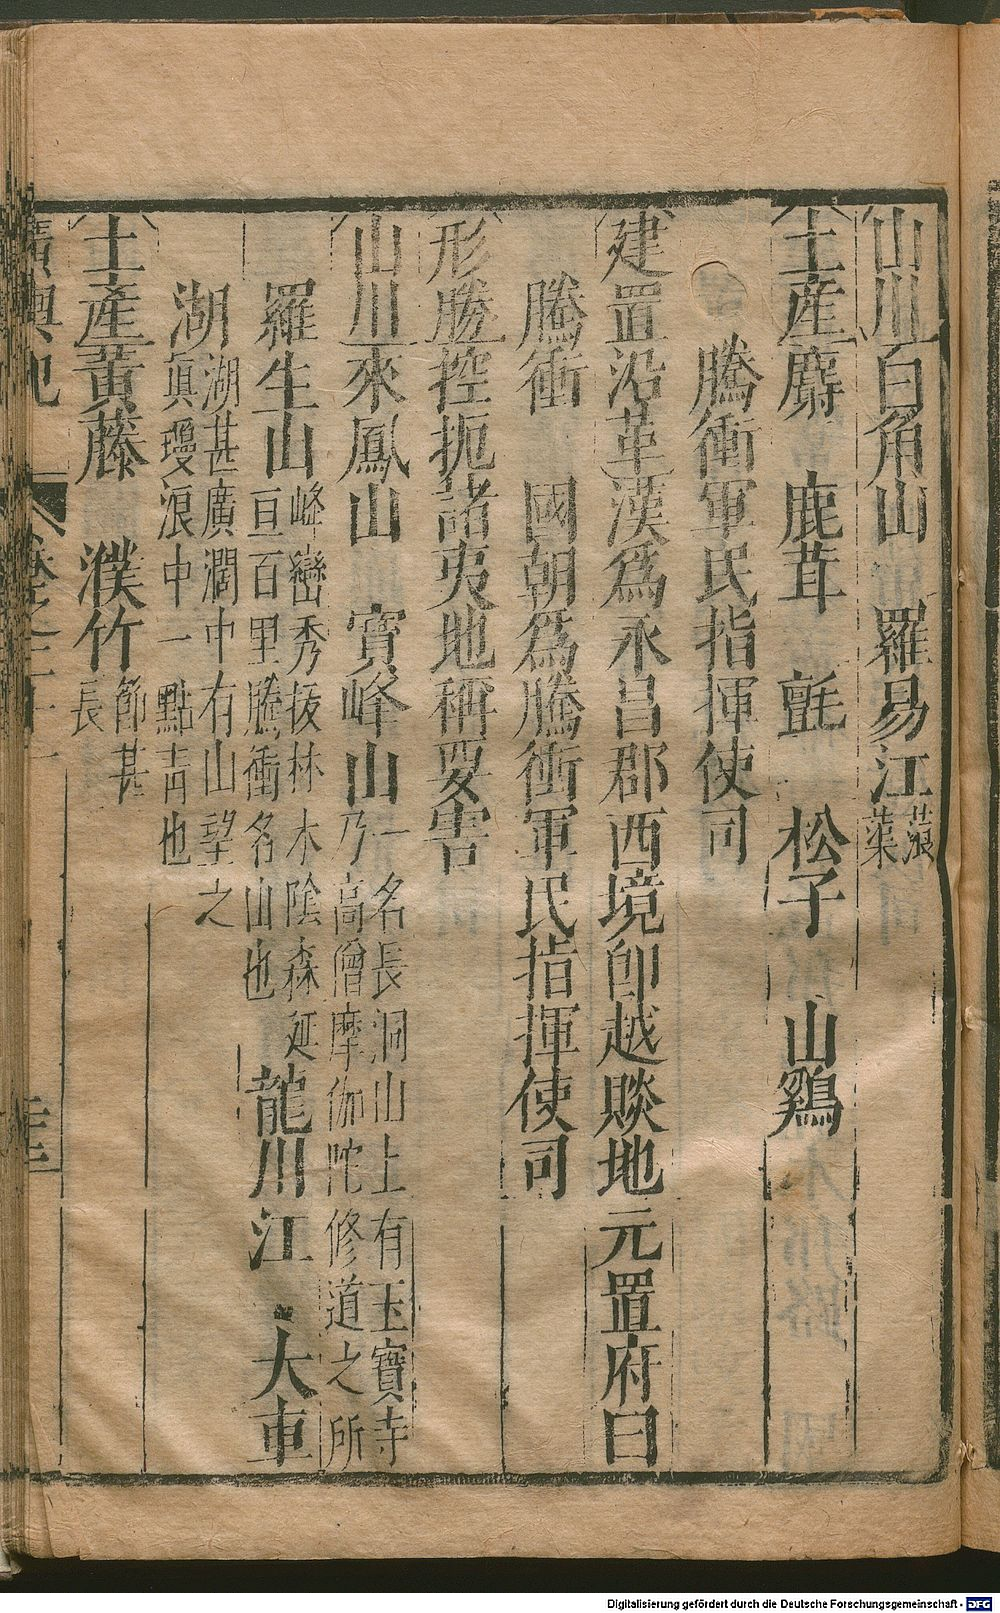 山川白角山 羅易江蒗蕖
土産麝 鹿茸 氈 松子 山鷄
騰衝軍民指揮使司
建置沿革漢爲永昌郡西境卽越賧地元置府曰
騰衝 國朝爲騰衝軍民指揮使司
形勝控扼諸夷地稱要害
山川來鳳山 寳峰山一名長洞山上有玉寶寺乃高僧摩伽陀修道之所
羅生山峰巒秀拔林木陰森延亘百里騰衝名山也龍川江 大車
湖湖甚廣濶中有山望之眞瓊浪中一點青也
土產黃藤 濮竹節甚長
廣輿記 卷之二十一
Digitalisierung gefördert durch die Deutsche Forschungsgemeinschaft - DFG